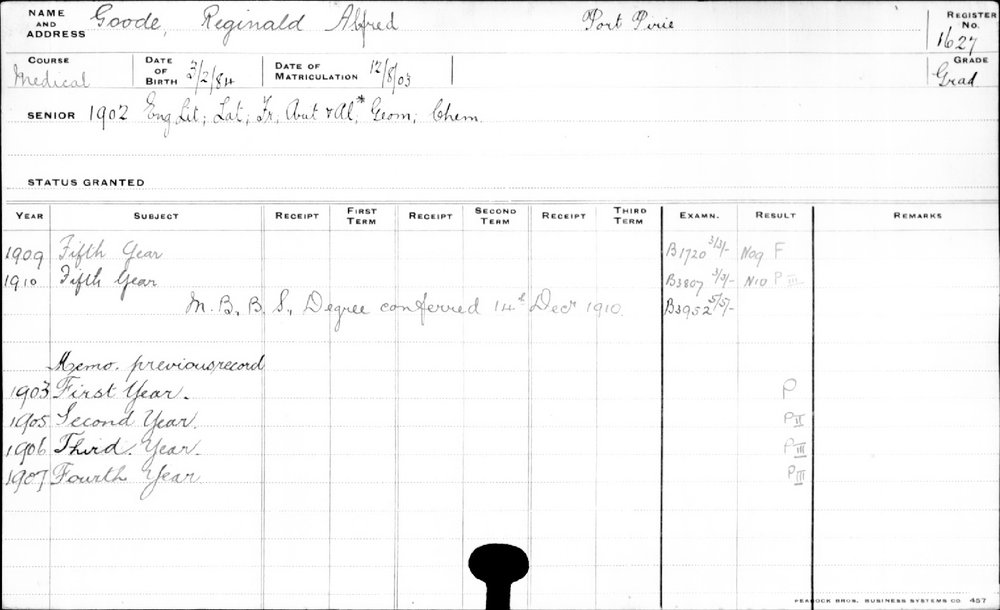 NAME AND ADDRESS Goode, Reginald Alfred Port Pirie REGISTER No. 1627
COURSE Medical DATE OF BIRTH 3/2/84 DATE OF MATRICULATION 12/8/03 GRADE Grad
SENIOR 1902 Eng Lit; Lat; Fr; Arit & Al*; Geom; Chem.
STATUS GRANTED
YEAR SUBJECT RECEIPT FIRST TERM RECEIPT SECOND TERM RECEIPT THIRD TERM EXAMN. RESULT REMARKS
1909 Fifth Year B1720 3/3/- N09 F
1910 Fifth Year B3807 3/3/- N10 P III
M.B., B.S., Degree conferred 14th Decr 1910. B3952 5/5/-
Memo. previous record
1903 First Year. P
1905 Second Year. P II
1906 Third Year. P III
1907 Fourth Year P III
PEACOCK BROS. BUSINESS SYSTEMS CO 457